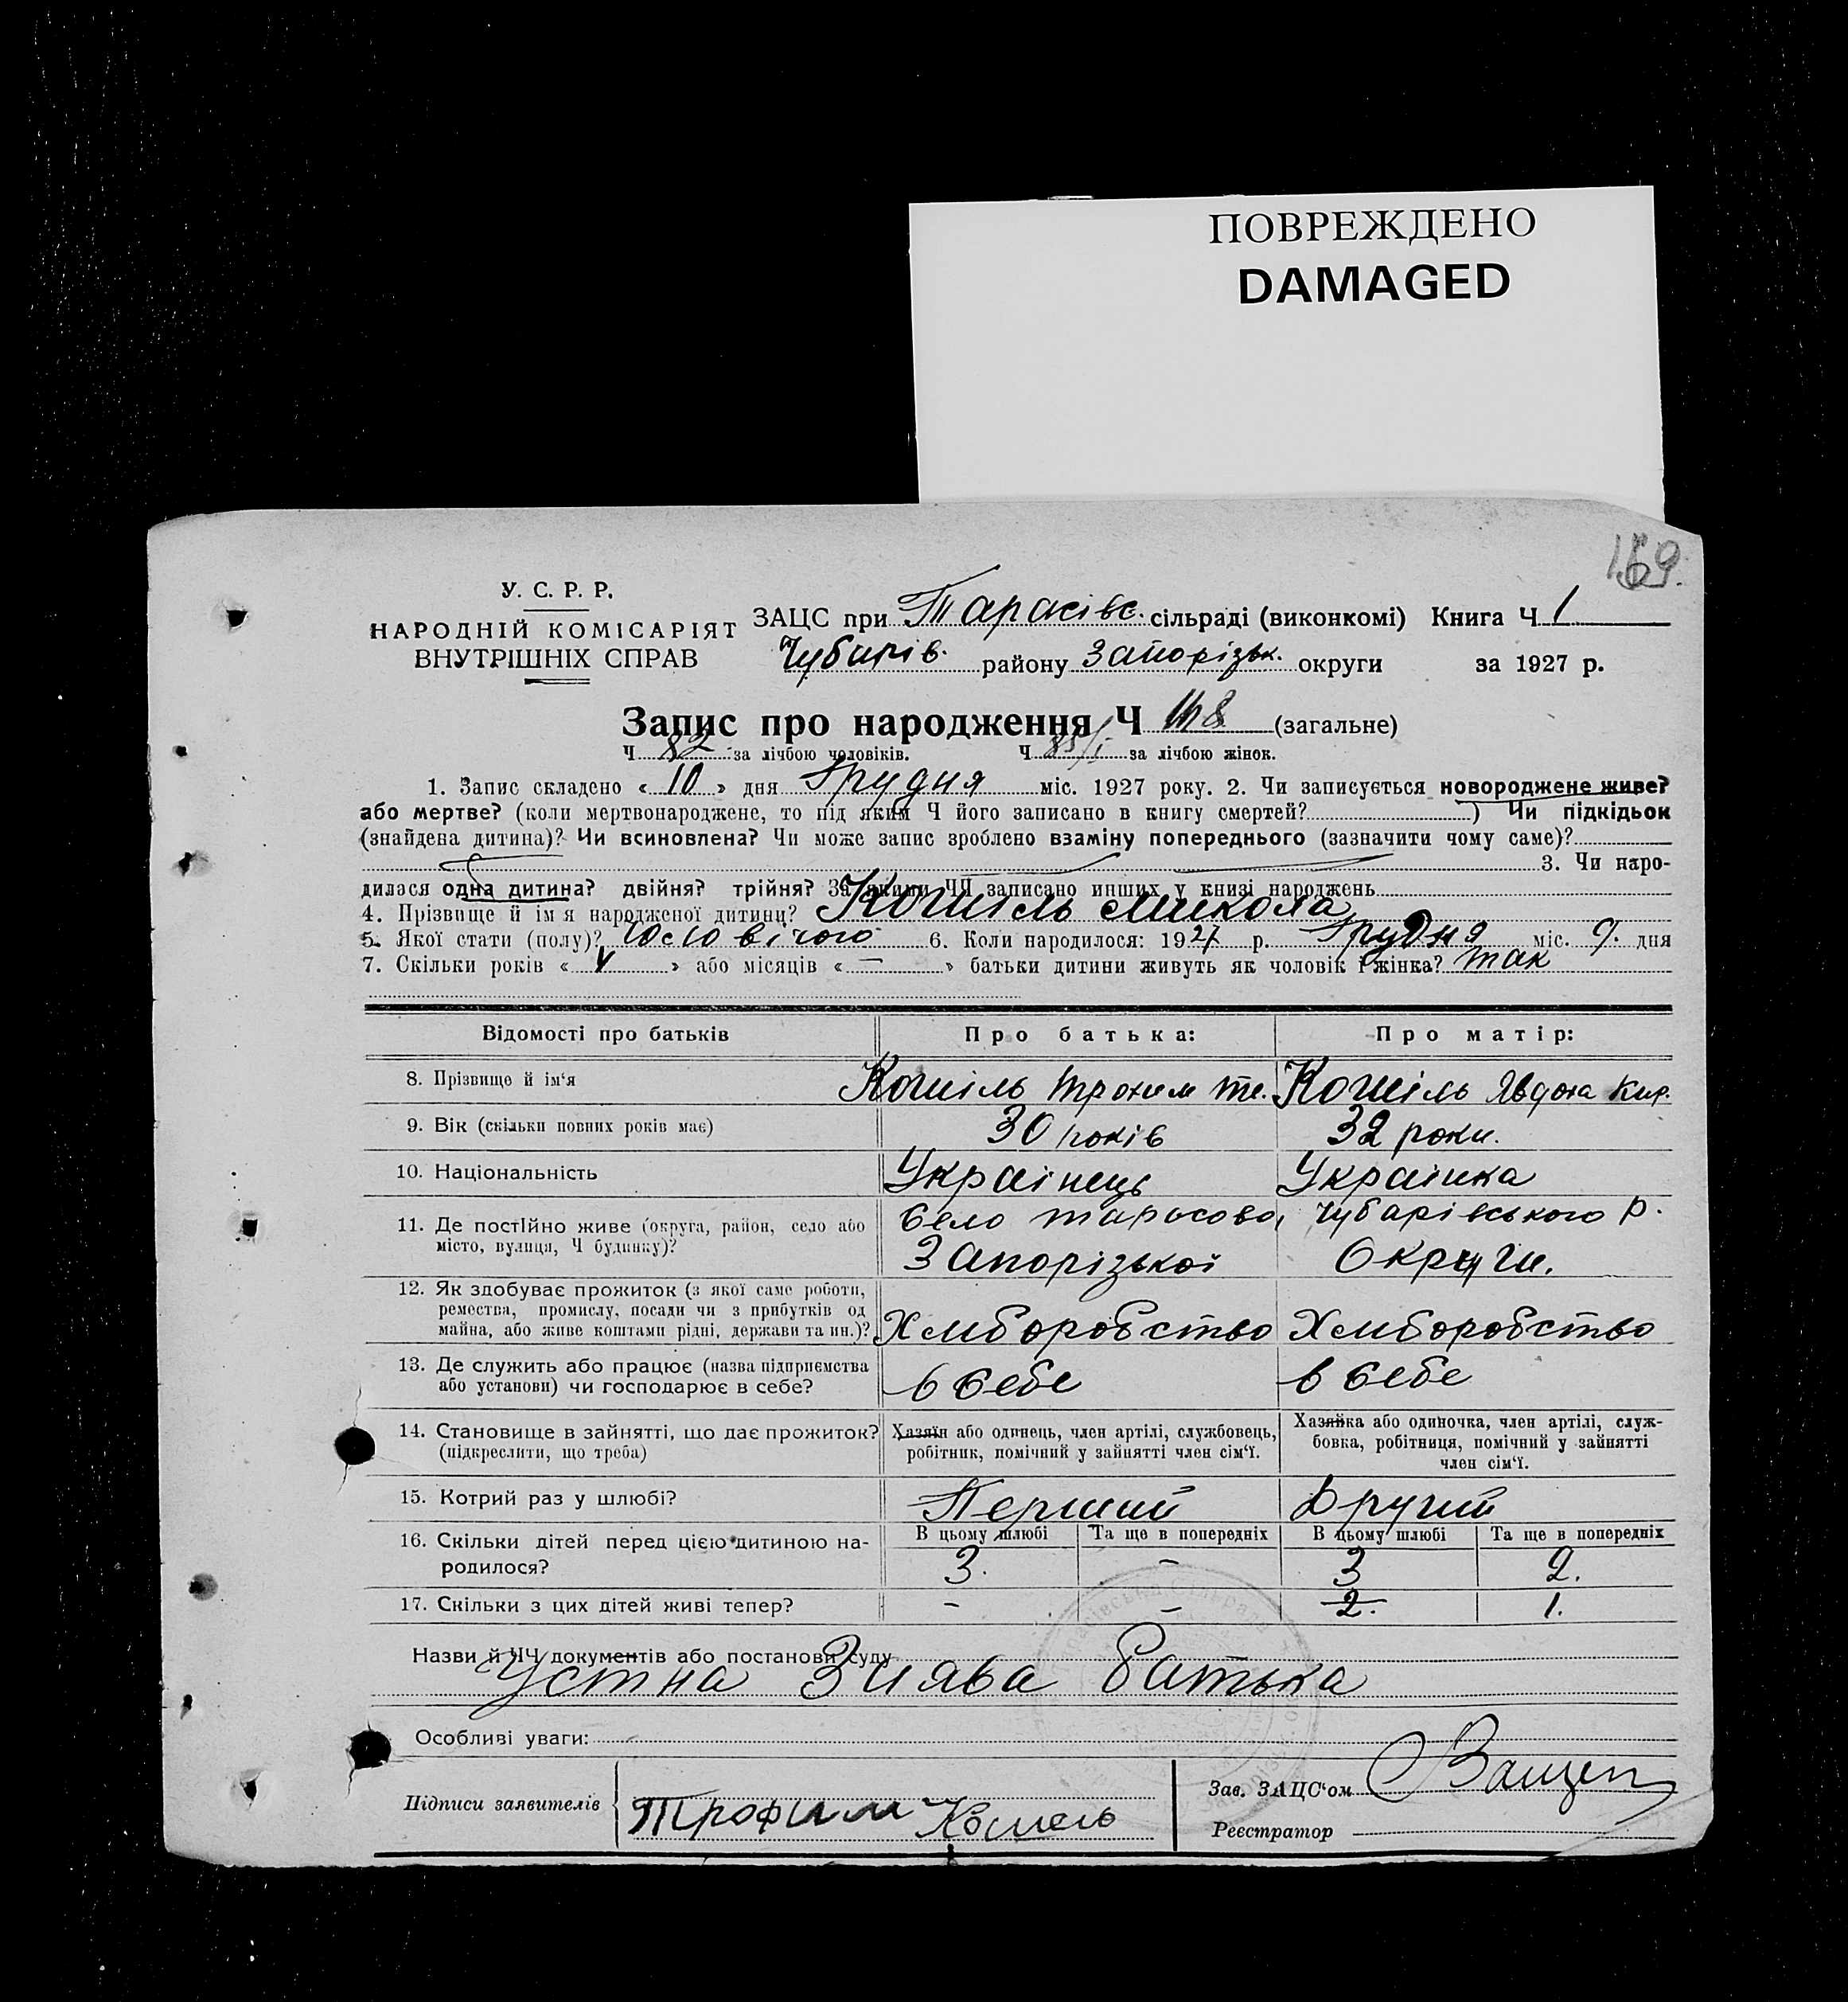 ПОВРЕЖДЕНО
DAMAGED
169.
У. С. Р. Р.
НАРОДНІЙ КОМІСАРІЯТ
ВНУТРІШНІХ СПРАВ
ЗАЦС при Тарасівс. сільраді (виконкомі) Книга Ч 1
Чубарів. району Запорізьк. округи за 1927 р.
Запис про народження Ч (загальне)
Ч 82 за лічбою чоловіків. Ч за лічбою жінок.
1. Запис складено « 10 » дня Грудня міс. 1927 року. 2. Чи записується новороджене живе?
або мертве? (коли мертвонароджене, то під яким Ч його записано в книгу смертей? ) Чи підкідьок
(знайдена дитина)? Чи всиновлена? Чи може запис зроблено взаміну попереднього (зазначити чому саме)?
3. Чи наро-
дилася одна дитина? двійня? трійня? За якими ЧЧ записано инших у книзі народжень
4. Прізвище й ім'я народженої дитини? Кошіль Микола
5. Якої стати (полу)? 6. Коли народилося: 1927 р. Грудня міс. 9. дня
7. Скільки років « 4 » або місяців « — » батьки дитини живуть як чоловік і жінка? так
Відомості про батьків Про батька: Про матір:
8. Прізвище й ім'я Кошіль Трохим Ти. Кошіль Явдоха Кир.
9. Вік (скільки повних років має) 30 років 32 роки.
10. Національність Украінець Украінка
11. Де постійно живе (округа, район, село або
місто, вулиця, Ч будинку)?
Село Тарасово, Чубарівського р.
Запорізькоі Округи.
12. Як здобуває прожиток (з якої саме роботи,
ремества, промислу, посади чи з прибутків од
майна, або живе коштами рідні, держави та ин.)? Хлиборобство Хлиборобство
13. Де служить або працює (назва підприємства
або установи) чи господарює в себе? в себе в себе
14. Становище в зайнятті, що дає прожиток?
(підкреслити, що треба)
Хазяїн або одинець, член артілі, службовець,
робітник, помічний у зайнятті член сім'ї.
Хазяйка або одиночка, член артілі, служ-
бовка, робітниця, помічний у зайнятті
член сім'ї.
15. Котрий раз у шлюбі? Перший Другий
16. Скільки дітей перед цією дитиною на-
родилося?
В цьому шлюбі Та ще в попередніх В цьому шлюбі Та ще в попередніх
3. – 3 2.
17. Скільки з цих дітей живі тепер? – – 2. 1.
Назви й ЧЧ документів або постанови суду
Устна Зиява батька
Особливі уваги:
Підписи заявителів Трофим Кошель
Зав. ЗАЦС'ом
Реєстратор